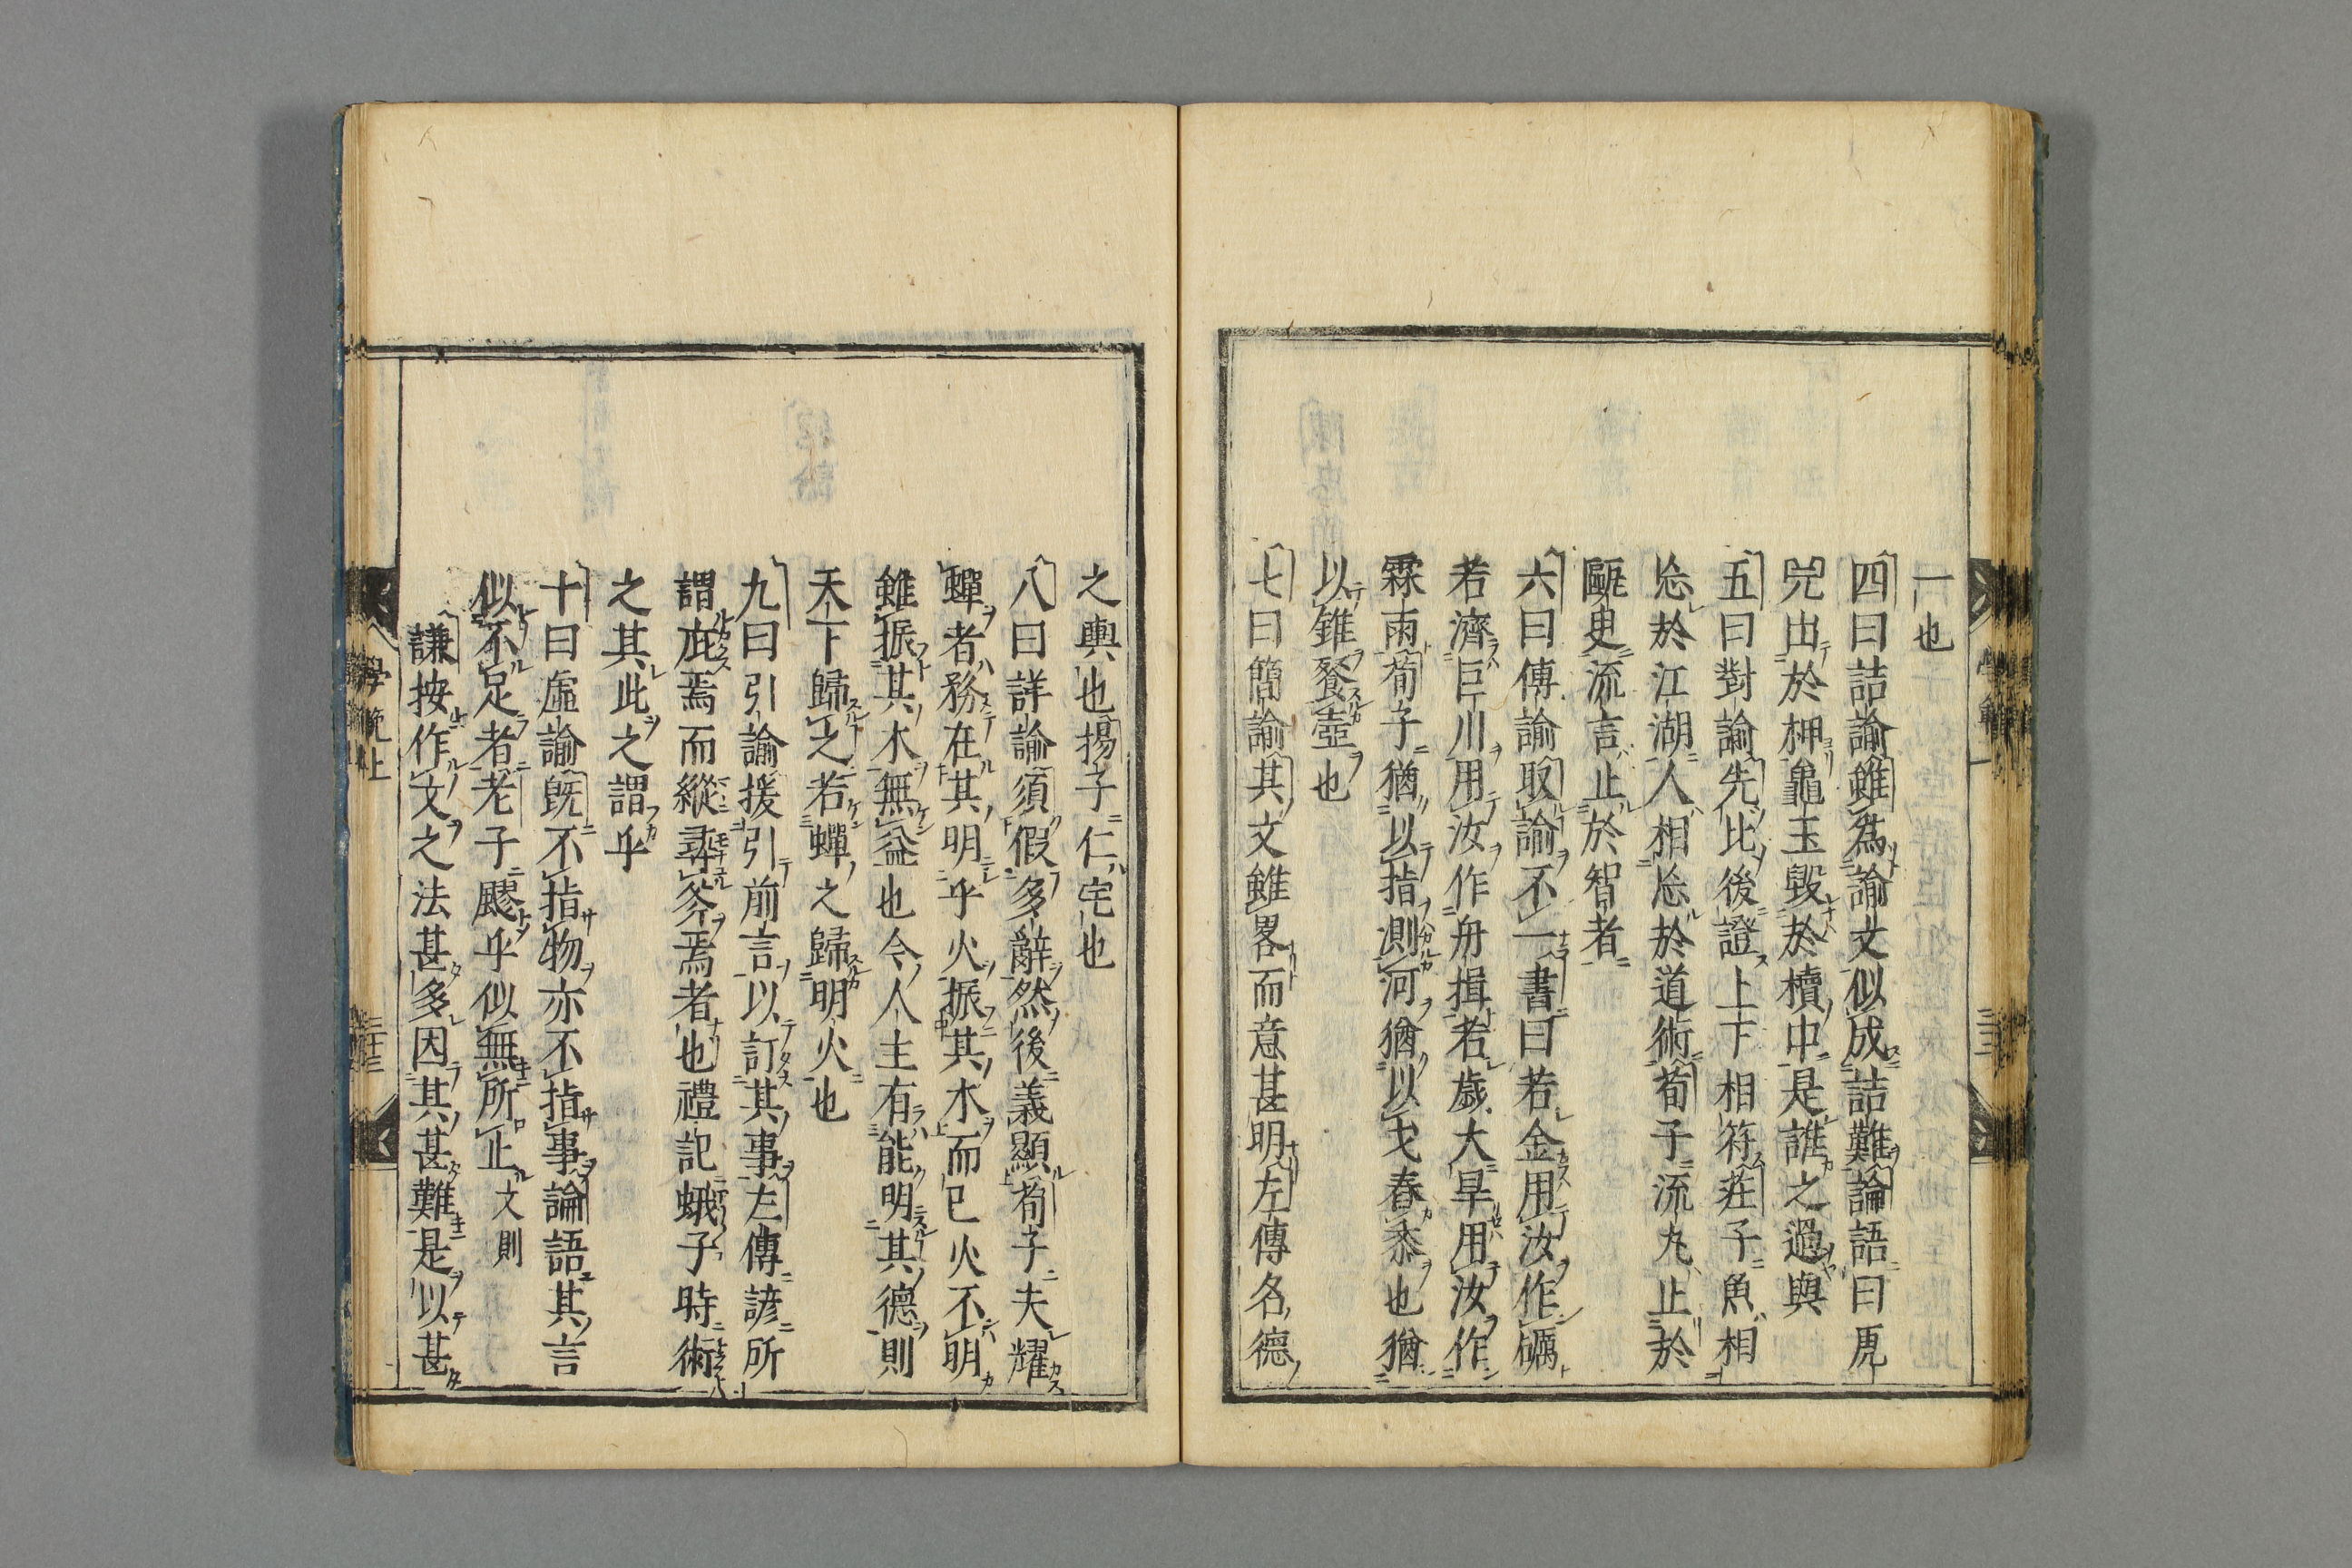 一也
四曰詰諭雖爲諭文似成詰難論語曰虎
兕出於柙龜玉毀於櫝中是誰之過與
五曰對諭先比後證上下相符莊子魚相
忘於江湖人相忘於道術荀子流丸止於
甌臾流言止於智者
六曰傳諭取諭不一書曰若金用汝作礪
若濟巨川用汝作舟揖若歲大旱用汝作
霖雨荀子猶以指測河猶以戈舂黍也猶
以錐餐壺也
七曰簡諭其文雖畧而意甚明左傳名德
之輿也揚子仁宅也
八曰詳諭須假多辭然後義顯荀子夫耀
蟬者務在其明乎火振其木而已火不明
雖振其木無益也今人主有能明其德則
天下歸之若蟬之歸明火也
九曰引諭援引前言以訂其事左傳諺所
謂庇焉而縱尋斧焉者也禮記蛾子時術
之其此之謂乎
十曰虛諭既不指物亦不指事論語其言
似不足者老子飂乎似無所止文則
謙按作文之法甚多因其甚難是以甚